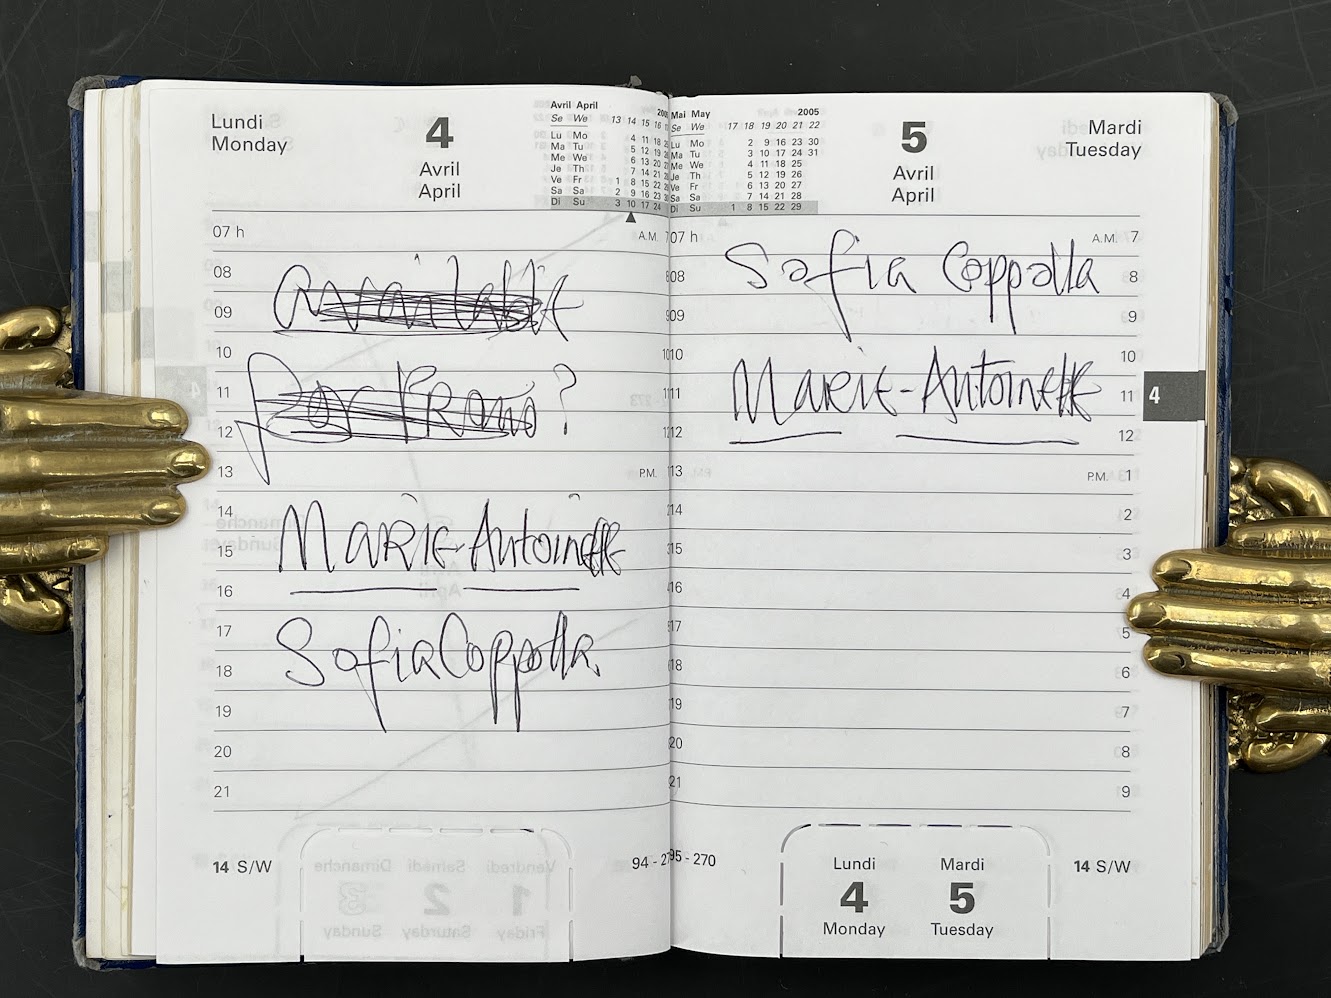 Lundi
Monday
4
Avril
April
Avril April
Se We 13 14 15 16
Lu Mo 4 11 18
Ma Tu 5 12 19
Me We 6 13 20
Je Th 7 14 21
Ve Fr 1 8 15 22
Sa Sa 2 9 16 23
Di Su 3 10 17 24
07 h A.M. 7
08
available
09
10
for Promo?
11
12
13 P.M.
14
Marie-Antoinette
15
16
17
Sofia Coppolla
18
19
20
21
14 S/W
94 - 27
Mai May 2005
Se We 17 18 19 20 21 22
Lu Mo 2 9 16 23 30
Ma Tu 3 10 17 24 31
Me We 4 11 18 25
Je Th 5 12 19 26
Ve Fr 6 13 20 27
Sa Sa 7 14 21 28
Di Su 1 8 15 22 29
5
Avril
April
Mardi
Tuesday
07 h A.M. 7
Sofia Coppolla
08 8
09 9
10 10
Marie-Antoinette
11 11
4
12 12
13 P.M. 1
14 2
15 3
16 4
17 5
18 6
19 7
20 8
21 9
95 - 270
Lundi Mardi
4 5
Monday Tuesday
14 S/W